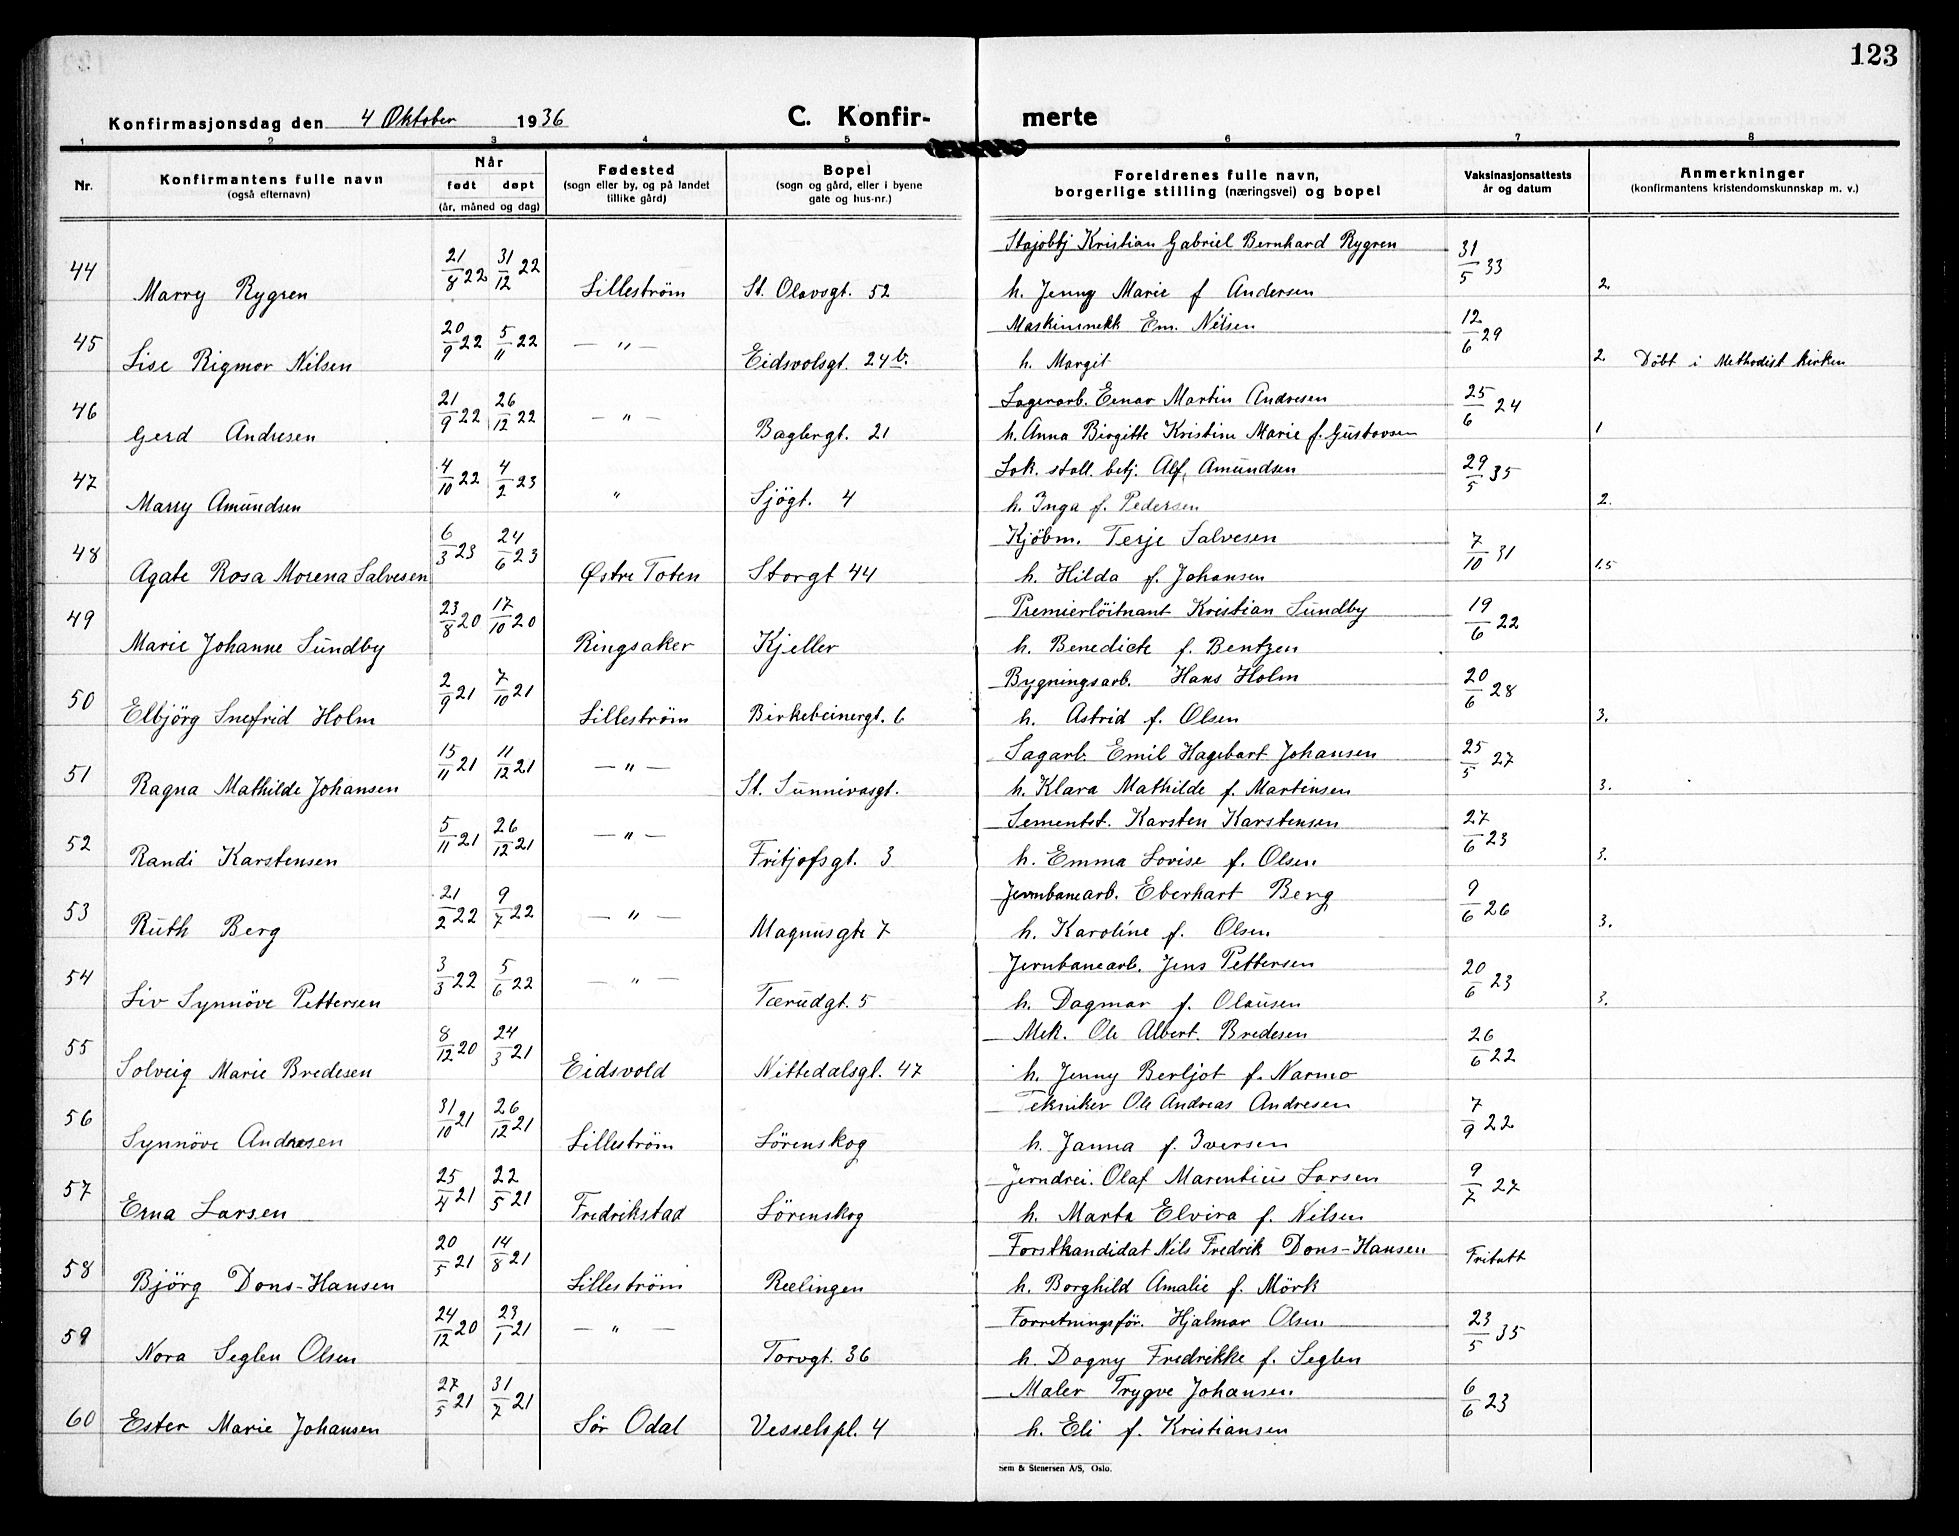 123
Konfirmasjonsdag den 4 Oktober 1936 C. Konfir- merte
1 2 3 4 5 6 7 8
Nr. Konfirmantens fulle navn (også efternavn) Når født døpt (år, måned og dag) Fødested (sogn eller by, og på landet tillike gård) Bopel (sogn og gård, eller i byene gate og hus-nr.) Foreldrenes fulle navn, borgerlige stilling (næringsvei) og bopel Vaksinasjonsattests år og datum Anmerkninger (konfirmantens kristendomskunnskap m. v.)
44 Marry Rygren 21/8 22 31/12 22 Lilleström St. Olavsgt. 52 Kristian Gabriel Bernhard Rygren 31/5 33
h. Jenny Marie f Andersen 2.
45 Lise Rigmor Nilsen 20/9 22 5/11 22 — " — Eidsvolsgt. 24 b. Maskinmekk Em. Nilsen 12/6 29
h. Margit 2. Döbt i Methodist kirken
46 Gerd Andresen 21/9 22 26/12 22 — " — Baglergt. 21 Lagerarb. Einar Martin Andresen 25/6 24
h. Anna Birgitte Kristine Marie f. Gustavsen 1
47 Marry Amundsen 4/10 22 4/2 23 " Sjögt. 4 Lok. stall. betj. Alf Amundsen 29/5 35
h. Inga f. Pedersen 2.
48 Agate Rosa Morena Salvesen 6/3 23 24/6 23 Østre Toten Storgt 44 Kjöbm. Terje Salvesen 7/10 31
h. Hilda f. Johansen 1.5
49 Marie Johanne Sundby 23/8 20 17/10 20 Ringsaker Kjeller Premierlöitnant Kristian Sundby 19/6 22
h. Benedicte f. Bentzen
50 Elbjörg Snefrid Holm 2/9 21 7/10 21 Lilleström Birkebeinergt. 6 Bygningsarb. Hans Holm 20/6 28
h. Astrid f. Olsen 3.
51 Ragna Mathilde Johansen 15/11 21 11/12 21 — " — St. Sunnivasgt. Sagarb. Emil Hagebart Johansen 25/5 27
h. Klara Mathilde f. Martinsen 3.
52 Randi Karstensen 5/11 21 26/12 21 — " — Fritjofsgt. 3 Sementst. Karsten Karstensen 27/6 23
h. Emma Lovise f. Olsen 3.
53 Ruth Berg 21/2 22 9/7 22 — " — Magnusgte 7 Jernbanearb. Eberhart Berg 9/6 26
h. Karoline f. Olsen 3.
54 Liv Synnöve Pettersen 3/3 22 5/6 22 — " — Tærudgt. 5 Jernbanearb. Jens Pettersen 20/6 23
h. Dagmar f. Olausen 3.
55 Solveig Marie Bredesen 8/12 20 24/3 21 Eidsvold Nittedalsgt. 47 Mek. Ole Albert. Bredesen 26/6 22
h. Jenny Berljot f. Narmo
56 Synnöve Andresen 31/10 21 26/12 21 Lilleström Lörenskog Tekniker Ole Andreas Andresen 7/9 22
h. Janna f. Iversen
57 Erna Larsen 25/4 21 22/5 21 Fredrikstad Lörenskog Jerndrei. Olaf Marentius Larsen 9/7 27
h. Marta Elvira f. Nilsen
58 Björg Dons-Hansen 20/5 21 14/8 21 Lilleström Rælingen Forstkandidat Nils Fredrik Dons-Hansen Fritatt
h. Borghild Amalie f. Mörk
59 Nora Seglen Olsen 24/12 20 23/1 21 — " — Torvgt. 36 Forretningsför. Hjalmar Olsen 23/5 35
h. Dagny Fredrikke f. Seglen
60 Ester Marie Johansen 27/5 21 31/7 21 Sör Odal Vesselspl. 4 Maler Trygve Johansen 6/6 23
h. Eli f. Kristiansen
Sem & Stenersen A/S, Oslo.